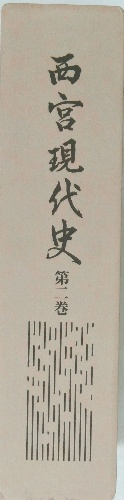 西宮現代史
第二巻